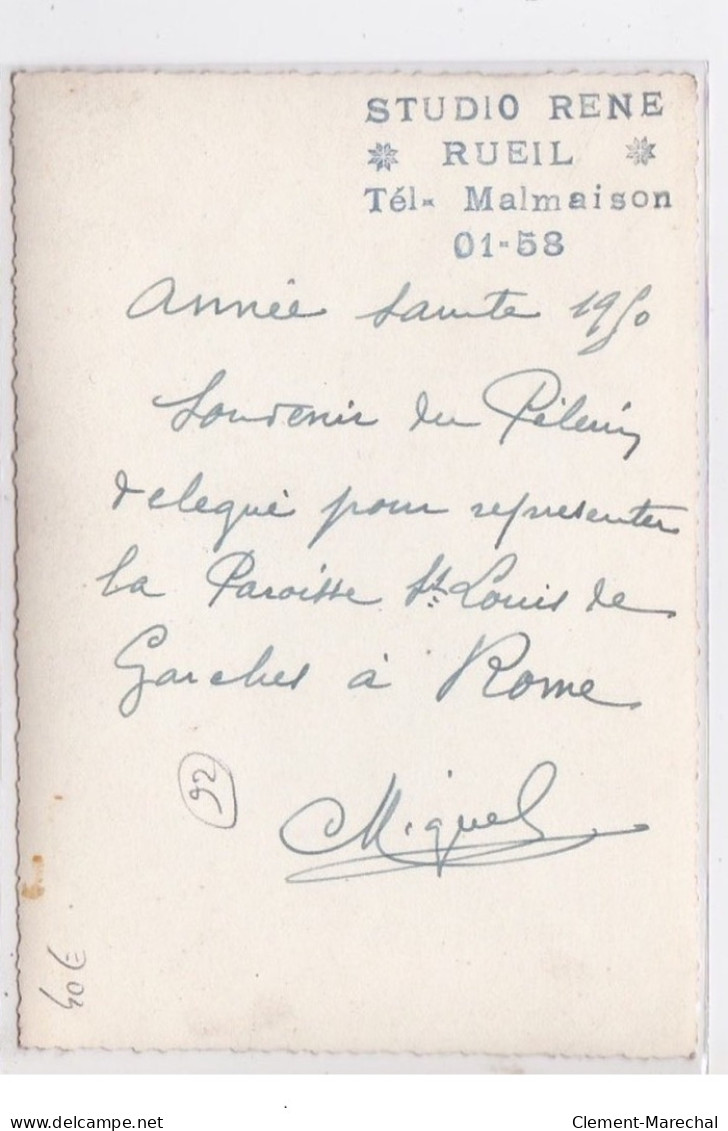 STUDIO RENE
* RUEIL *
Tél- Malmaison
01-58
Année Sainte 1950
Souvenir du Pélerin
delegué pour representer
la Paroisse St Louis de
Garches à Rome
Miguel
92
40€
Clement-Marechal